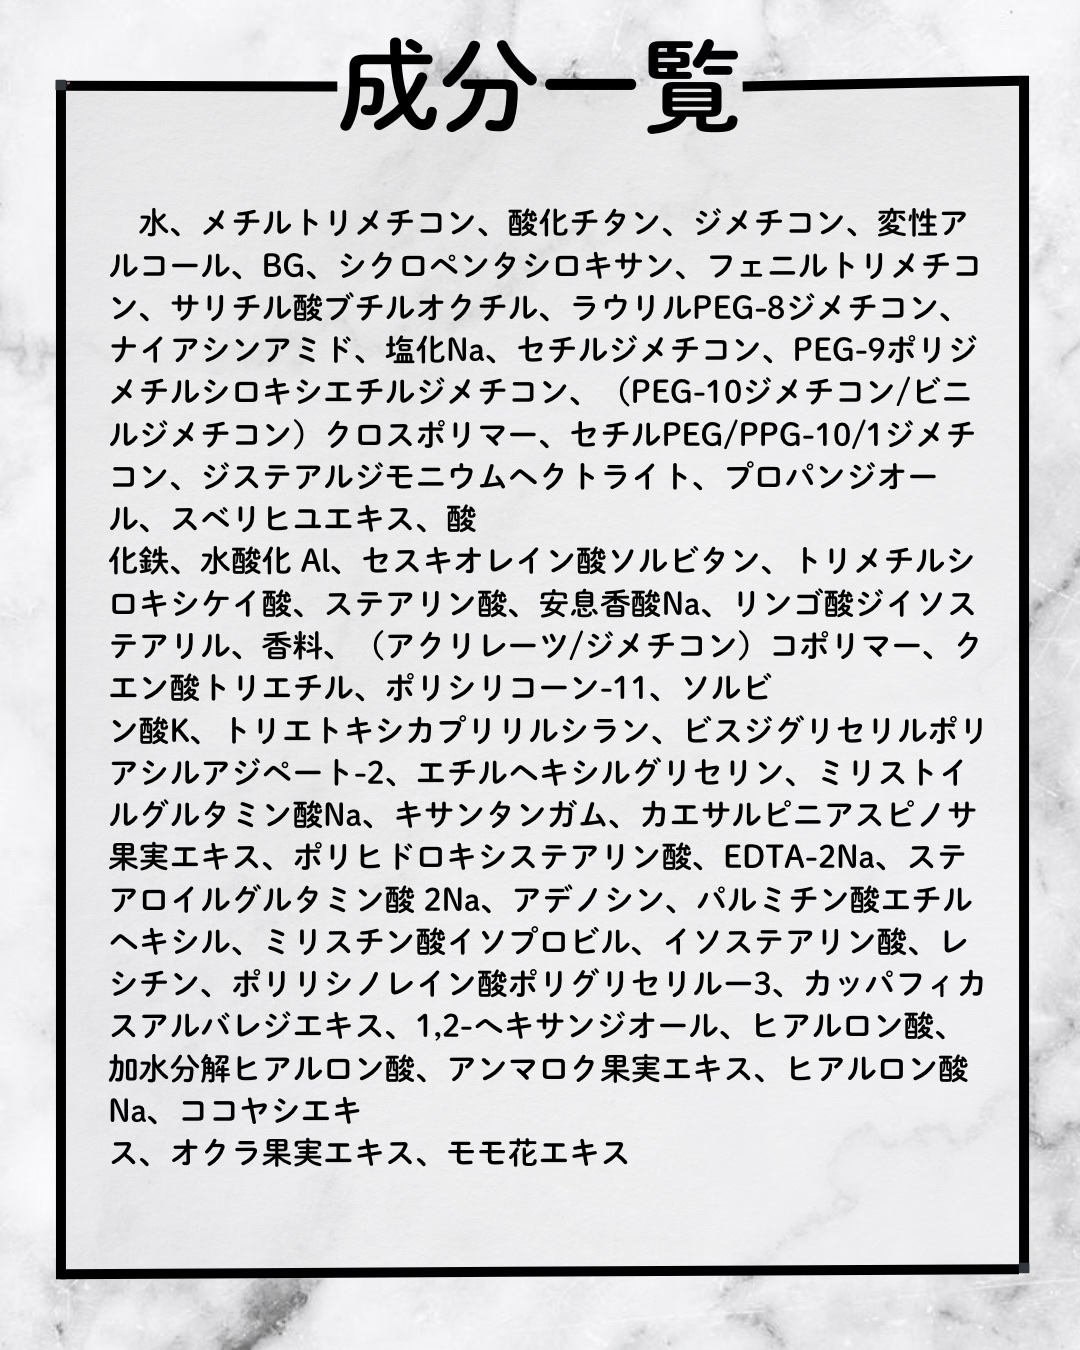 成分一覧
水、メチルトリメチコン、酸化チタン、ジメチコン、変性ア
ルコール、BG、シクロペンタシロキサン、フェニルトリメチコ
ン、サリチル酸ブチルオクチル、ラウリルPEG-8ジメチコン、
ナイアシンアミド、塩化Na、セチルジメチコン、PEG-9ポリジ
メチルシロキシエチルジメチコン、（PEG-10ジメチコン/ビニ
ルジメチコン）クロスポリマー、セチルPEG/PPG-10/1ジメチ
コン、ジステアルジモニウムヘクトライト、プロパンジオー
ル、スベリヒユエキス、酸
化鉄、水酸化 Al、セスキオレイン酸ソルビタン、トリメチルシ
ロキシケイ酸、ステアリン酸、安息香酸Na、リンゴ酸ジイソス
テアリル、香料、（アクリレーツ/ジメチコン）コポリマー、ク
エン酸トリエチル、ポリシリコーン-11、ソルビ
ン酸K、トリエトキシカプリリルシラン、ビスジグリセリルポリ
アシルアジペート-2、エチルヘキシルグリセリン、ミリストイ
ルグルタミン酸Na、キサンタンガム、カエサルピニアスピノサ
果実エキス、ポリヒドロキシステアリン酸、EDTA-2Na、ステ
アロイルグルタミン酸 2Na、アデノシン、パルミチン酸エチル
ヘキシル、ミリスチン酸イソプロピル、イソステアリン酸、レ
シチン、ポリリシノレイン酸ポリグリセリルー3、カッパフィカ
スアルバレジエキス、1,2-ヘキサンジオール、ヒアルロン酸、
加水分解ヒアルロン酸、アンマロク果実エキス、ヒアルロン酸
Na、ココヤシエキ
ス、オクラ果実エキス、モモ花エキス